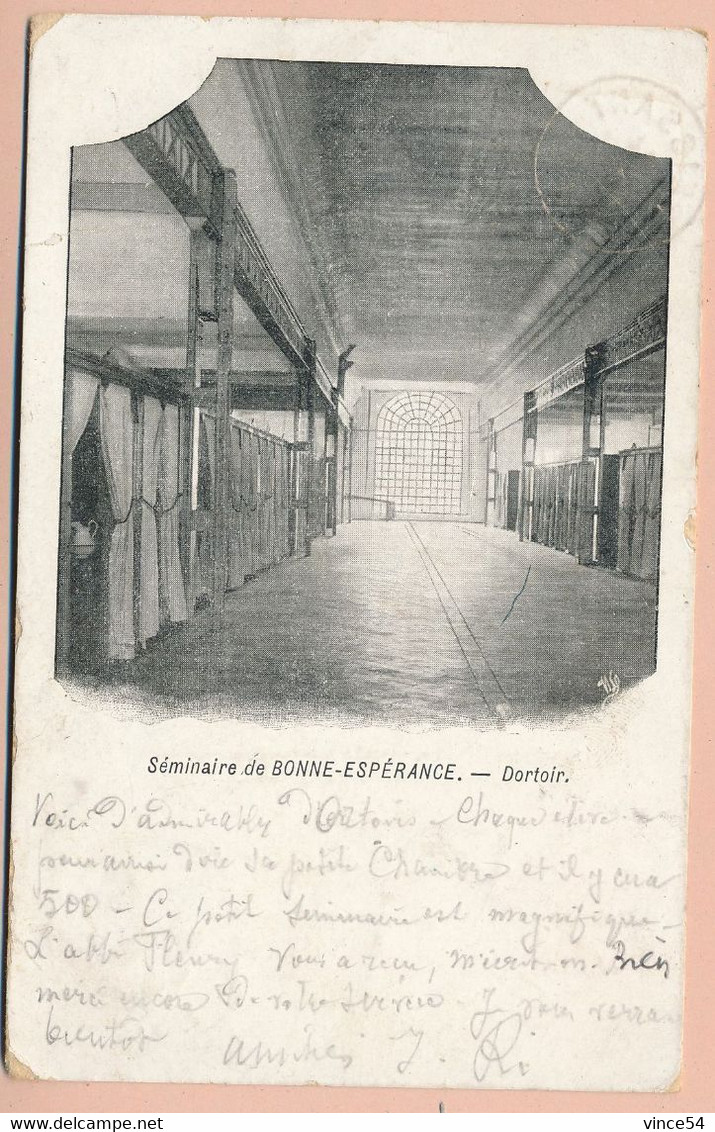 Séminaire de BONNE-ESPÉRANCE. — Dortoir.
Voici d'admirables Dortoirs — Chaque élève
pour ainsi dire sa petite Chambre et il y en a
500 — Ce petit Seminaire est magnifique —
L'abbé Fleury vous a reçu, Bien
merci encore de votre service — Je vous verrai
bientôt
amitiés J.
vince54